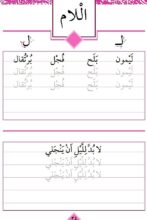 اَلْلام
لـ ـل
لَيْمون بَلَح فُجْل بُرْتُقال
لَيْمون بَلَح فُجْل بُرْتُقال
لا بُدَّ لِلَّيْلِ أَنْ يَنْجَلي
لا بُدَّ لِلَّيْلِ أَنْ يَنْجَلي